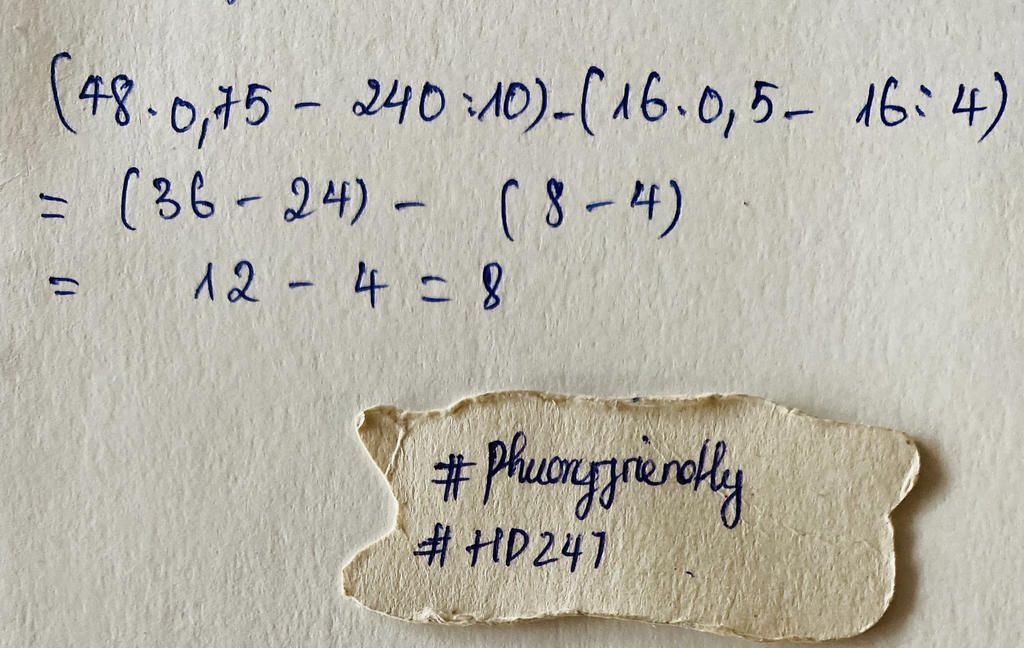 (48.0,75 - 240:10)-(16.0,5- 16:4)
= (36 - 24) - (8-4)
= 12 - 4 = 8
# Phuongfriendly
# HD247